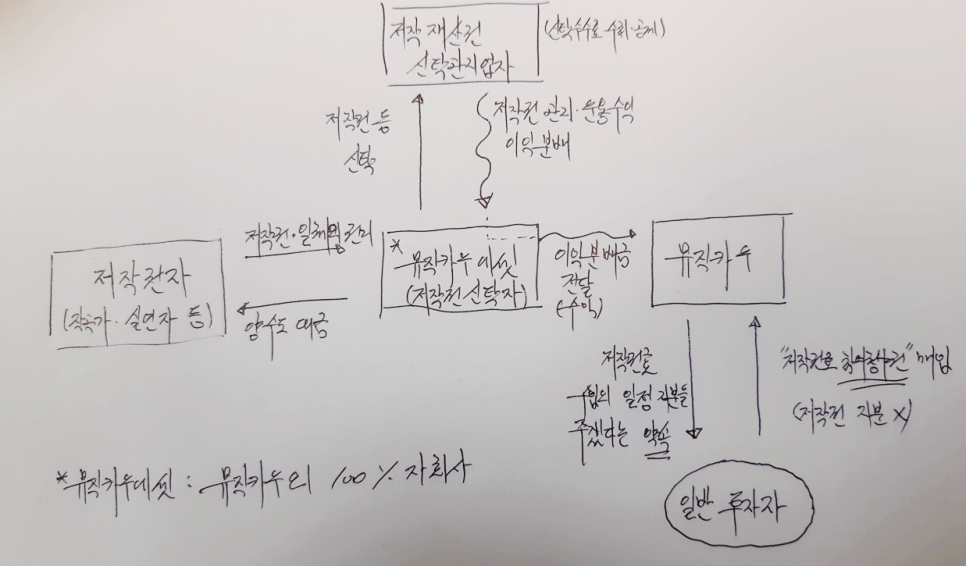 저작재산권
신탁관리업자
(신탁수수료 수취·공제)
저작권 등
신탁
저작권 관리·운용수익
이익분배
저작권·일체의 권리
저작권자
(작곡가·실연자 등)
양수도 대금
* 뮤직카우에셋
(저작권신탁자)
이익분배금
전달
(수익)
뮤직카우
저작권료
수입의 일정 지분을
주겠다는 약속
"저작권료 참여청구권" 매입
(저작권 지분 X)
일반 투자자
*뮤직카우에셋 : 뮤직카우의 100% 자회사